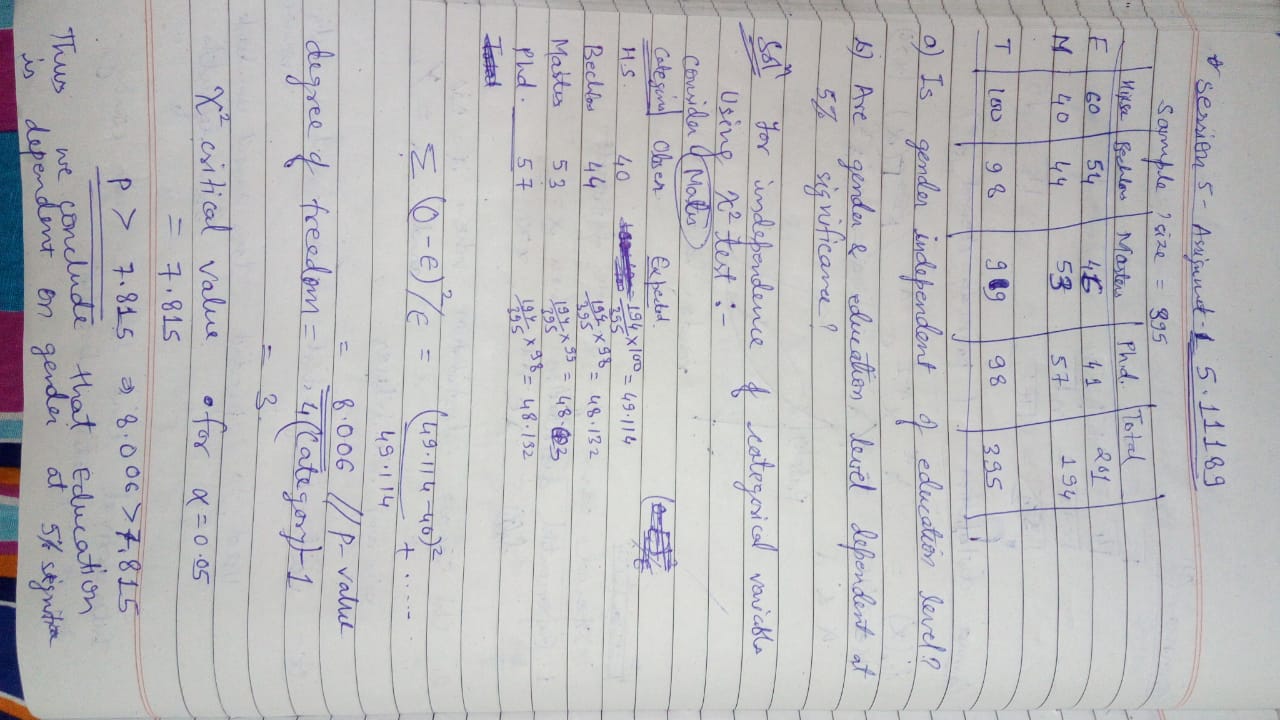 * Session 5 - Assignment-1 5.11189
Sample size = 395
High Bechlors Masters Phd. Total
F 60 54 46 41 201
M 40 44 53 57 194
T 100 98 99 98 395
a) Is gender independent of education level?
b) Are gender & education level dependent at
5% significance?
Solⁿ for independence of categorical variable
Using χ² test :-
consider (Males)
Category Obser Expected.
H.S. 40 194/395 x 100 = 49.114
Bechlor 44 194/395 x 98 = 48.132
Master 53 194/395 x 99 = 48.623
Phd. 57 194/395 x 98 = 48.132
Σ (O-E)²/E = (49.114-40)²/49.114 + .....
= 8.006 // P-value
degree of freedom = 4(Category)-1
= 3
χ² critical value for α=0.05
= 7.815
P > 7.815 ⇒ 8.006 > 7.815
Thus we conclude that education
is dependent on gender at 5%